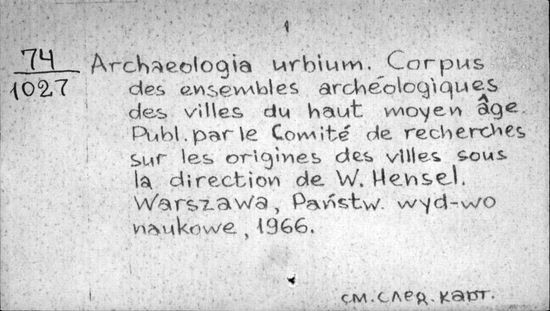 74
1027
Archaeologia urbium. Corpus
des ensembles archéologiques
des villes du haut moyen âge.
Publ. par le Comité de recherches
sur les origines des villes sous
la direction de W. Hensel.
Warszawa, Państw. wyd-wo
naukowe, 1966.
см. след. карт.